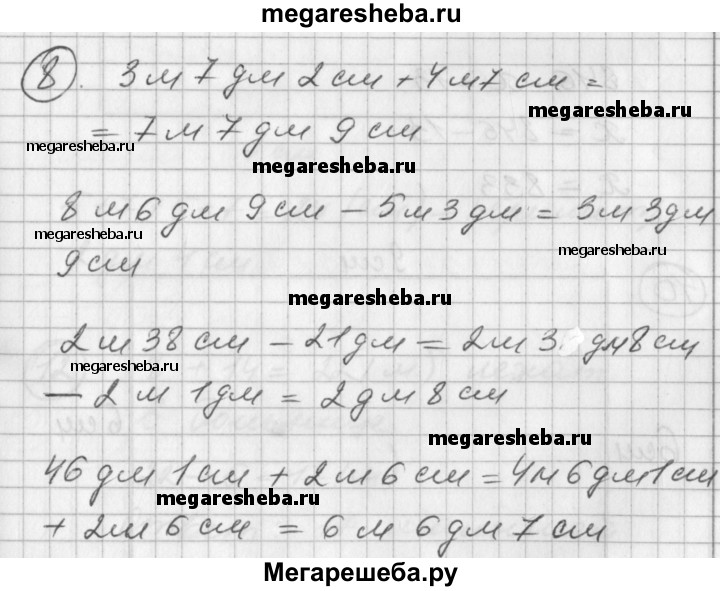 megaresheba.ru
8. 3 м 7 дм 2 см + 4 м 7 см =
megaresheba.ru
= 7 м 7 дм 9 см
megaresheba.ru
megaresheba.ru
8 м 6 дм 9 см - 5 м 3 дм = 3 м 3 дм
megaresheba.ru
megaresheba.ru
9 см
megaresheba.ru
2 м 38 см - 21 дм = 2 м 3 дм 8 см
megaresheba.ru
- 2 м 1 дм = 2 дм 8 см
megaresheba.ru
46 дм 1 см + 2 м 6 см = 4 м 6 дм 1 см
megaresheba.ru
+ 2 м 6 см = 6 м 6 дм 7 см
Мегарешеба.ру